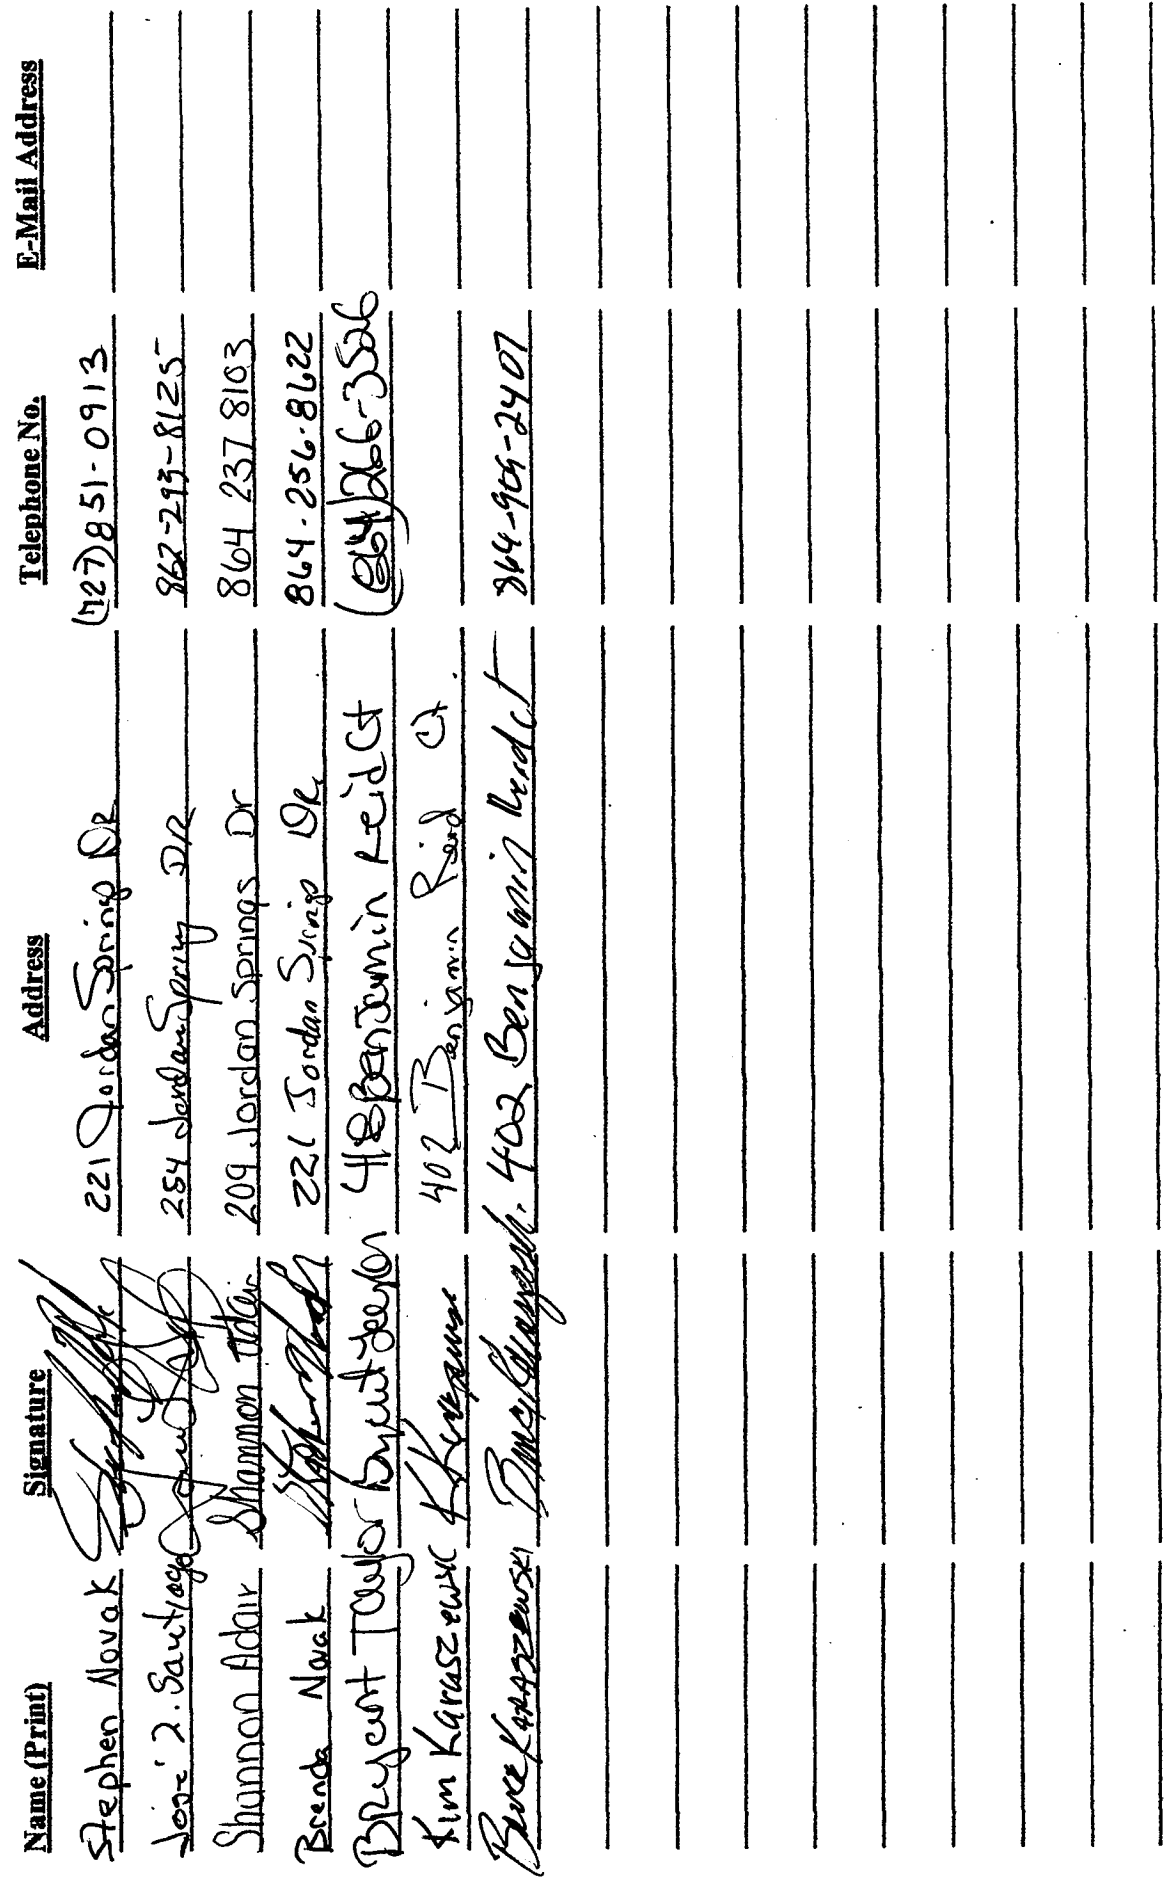 Name (Print) Signature Address Telephone No. E-Mail Address
Stephen Novak 221 Jordan Spring DR (727) 851-0913
José 2. Santiago 254 Jordan Spring DR 862-293-8125
Shannon Adair Shannon Adair 209 Jordan Springs Dr 864 237 8103
Brenda Novak 221 Jordan Spring DR. 864-256-8622
Bryant Taylor Bryant Taylor 418 Benjamin Reid Ct (864) 266-3526
Kim Karaszewski 402 Benjamin Reid Ct.
Bruce Karaszewski 402 Benjamin Reid Ct 864-909-2407